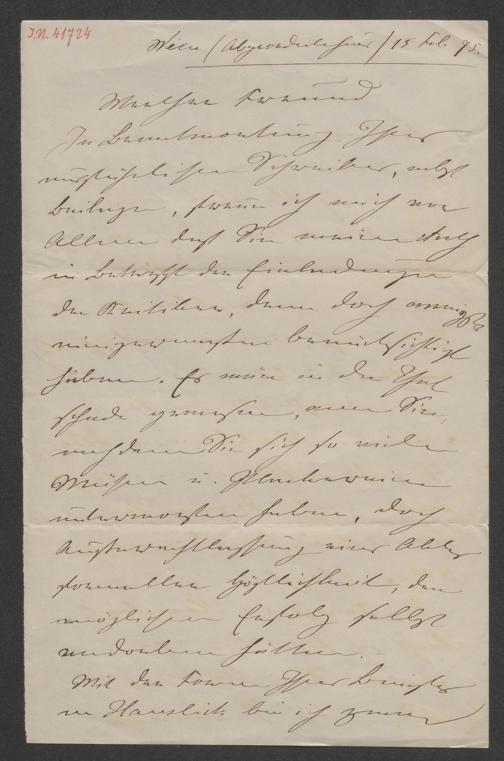 I.N. 41724
Wien (Abgeordnetenhaus) 15 Feb. 95.
Werther Freund
In Beantwortung Ihres
ausführlichen Schreibens, nebst
Beilagen, freue ich mich vor
Allem daß Sie meinen Rath
in Betreff der Einladungen
der Kritiker, denn doch
einigermassen berücksichtigt
haben. Es wäre in der That
schade gewesen, wenn Sie,
nachdem Sie sich so vielen
Mühen u. Plackereien
unterworfen haben, doch
Außerachtlassung eines Aktes
formeller Höflichkeit, den
möglichen Erfolg selbst
verdorben hätten.
Mit der Form Ihres Briefes
an Hanslick bin ich zwar